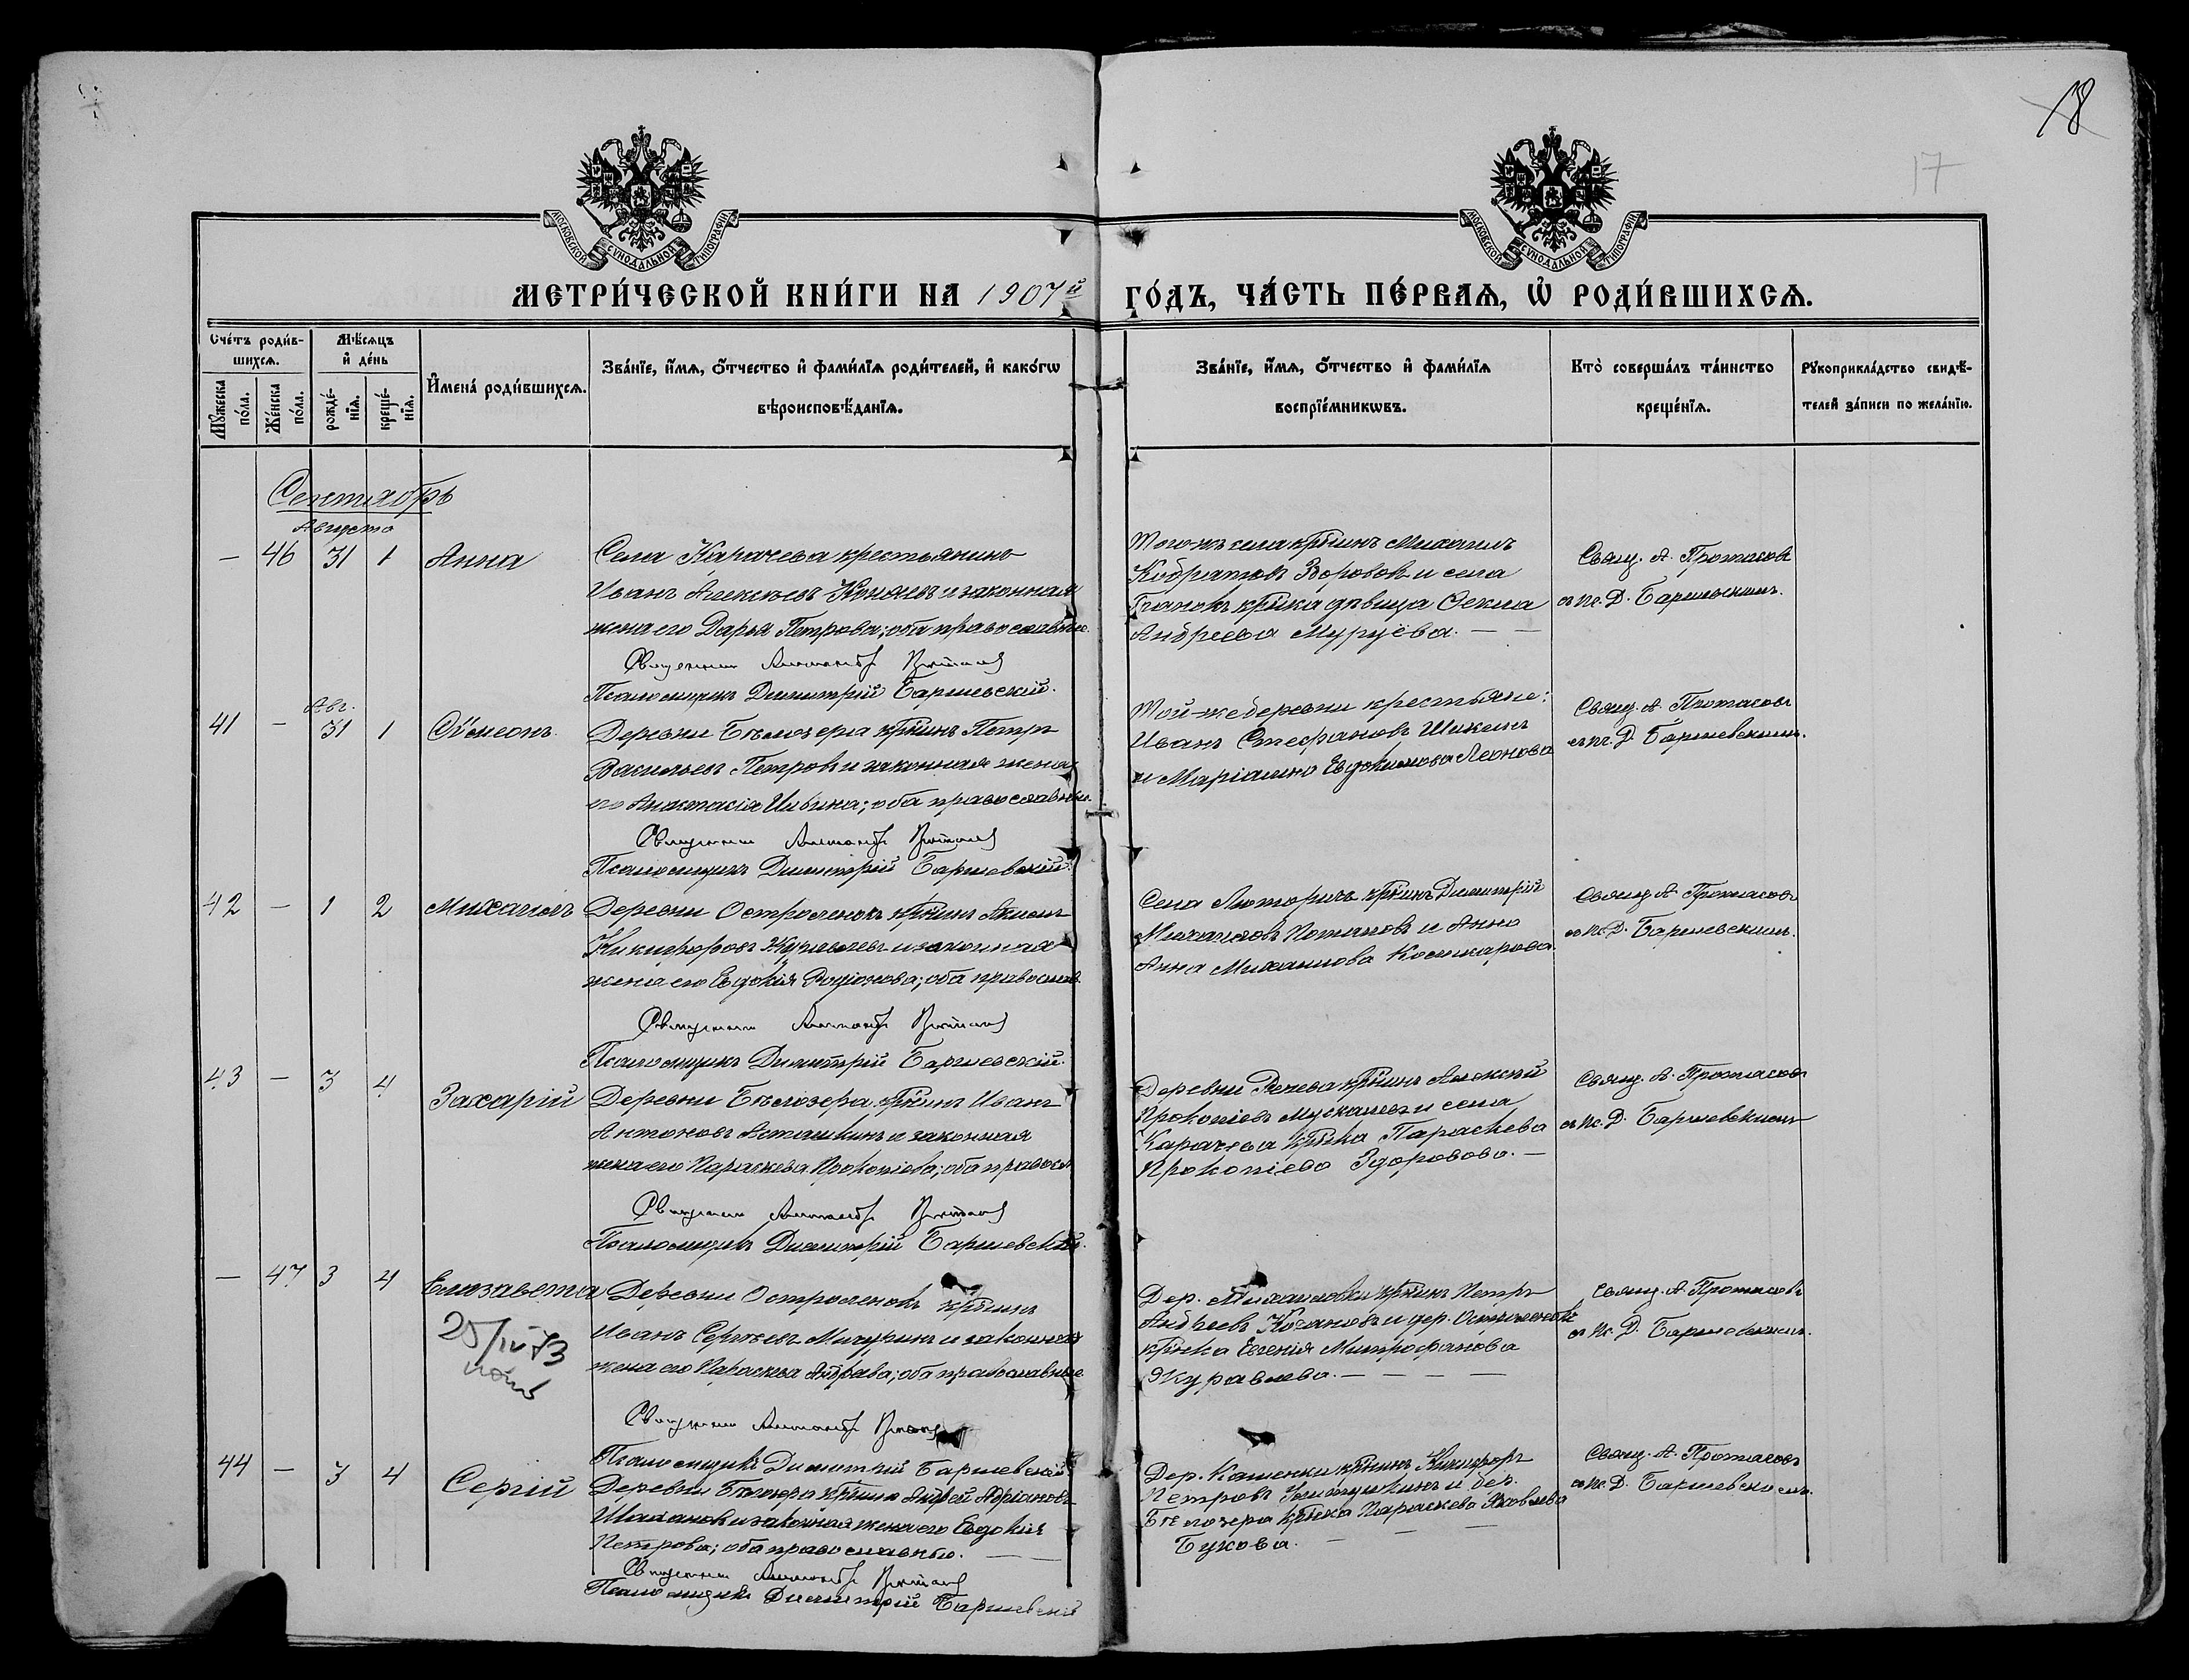 18
17
МОСКОВСКОЙ СѴНОДАЛЬНОЙ ТИПОГРАФІИ
МОСКОВСКОЙ СѴНОДАЛЬНОЙ ТИПОГРАФІИ
МЕТРИ́ЧЕСКОЙ КНИ́ГИ НА 1907й ГО́ДЪ, ЧА́СТЬ ПЕ́РВАѦ, Ѡ҆ РОДИ́ВШИХСѦ.
Сче́тъ роди́в-
шихсѧ.
Мꙋ́жеска
по́ла.
Же́нска
по́ла.
Мѣ́сѧцъ
и҆ де́нь
рожде́-
нїѧ.
креще́-
нїѧ.
И҆мена̀ роди́вшихсѧ.
Зва́нїе, и҆́мѧ, ѻ҆́тчество и҆ фами́лїѧ роди́телей, и҆ како́гѡ
вѣроисповѣ́данїѧ.
Зва́нїе, и҆́мѧ, ѻ҆́тчество и҆ фами́лїѧ
воспрїе́мникѡвъ.
Кто̀ соверша́лъ та́инство
креще́нїѧ.
Рꙋкоприкла́дство свидѣ́-
телей за́писи по жела́нїю.
Сентябрь
Августа
— 46 31 1 Анна
Села Карачева крестьянинъ
Иванъ Алексѣевъ Коняевъ и законная
жена его Дарья Петрова; оба православные.
Священникъ Протасовъ
Псаломщикъ Димитрій Баршевскій.
Того-же села кр̃нинъ Михаилъ
Кодратовъ Ворововъ и села
кр̃нка дѣвица Оекла
Андреева Муруёва. — —
Свящ. А. Протасовъ
съ пс. Д. Баршевскимъ.
Авг.
41 — 31 1 Сѵмеонъ
Деревни Бѣлозера кр̃нинъ Петръ
Васильевъ Петровъ и законная жена
его Анастасія Ильина; оба православные.
Священникъ Протасовъ
Псаломщикъ Димитрій Баршевскій.
Той-же деревни крестьяне:
Иванъ Стефановъ Шикинъ
и Маріамна Евдокимова Леонова
Свящ. А. Протасовъ
съ пс. Д. Баршевскимъ.
42 — 1 2 Михаилъ
Деревни Остроленокъ кр̃нинъ Акимъ
Никифоровъ Журавлевъ и законная
жена его Евдокія Родіонова; оба православ.
Священникъ Протасовъ
Псаломщикъ Димитрій Баршевскій.
Села Люторичъ кр̃нинъ Димитрій
Михаиловъ Потаповъ и Анна
Анна Михаилова Костикарова.
Свящ. А. Протасовъ
съ пс. Д. Баршевскимъ.
43 — 3 4 Захарій
Деревни Бѣлозера кр̃нинъ Иванъ
Антоновъ Асташкинъ и законная
жена его Параскева Прокопіева; оба правосл.
Священникъ Протасовъ
Псаломщикъ Димитрій Баршевскій.
Деревни кр̃нинъ Алексѣй
Прокопіевъ и села
Карачева кр̃нка Параскева
Прокопіева Здоровова. —
Свящ. А. Протасовъ
съ пс. Д. Баршевскимъ
— 47 3 4 Елизавета
25/IV 73
Деревни Остроленокъ кр̃нинъ
Иванъ Сергѣевъ Мичуринъ и законная
жена его Параскева Андреева; оба православные
Священникъ Протасовъ
Псаломщикъ Димитрій Баршевскій.
Дер. Михаиловки кр̃нинъ Петръ
Андреевъ Кочановъ и дер. Остроленокъ
кр̃нка Евгенія Митрофанова
Журавлева. — — — —
Свящ. А. Протасовъ
съ пс. Д. Баршевскимъ.
44 — 3 4 Сергій
Деревни Бѣлозера кр̃нинъ Андрей Адріановъ
Шалановъ и законная жена его Евдокія
Петрова; оба православные. — —
Священникъ Протасовъ
Псаломщикъ Димитрій Баршевскій
Дер. Кашенки кр̃нинъ Никифоръ
Петровъ и дер.
Бѣлозера кр̃нка Параскева Яковлева
Букова. — — —
Свящ. А. Протасовъ
съ пс. Д. Баршевскимъ.